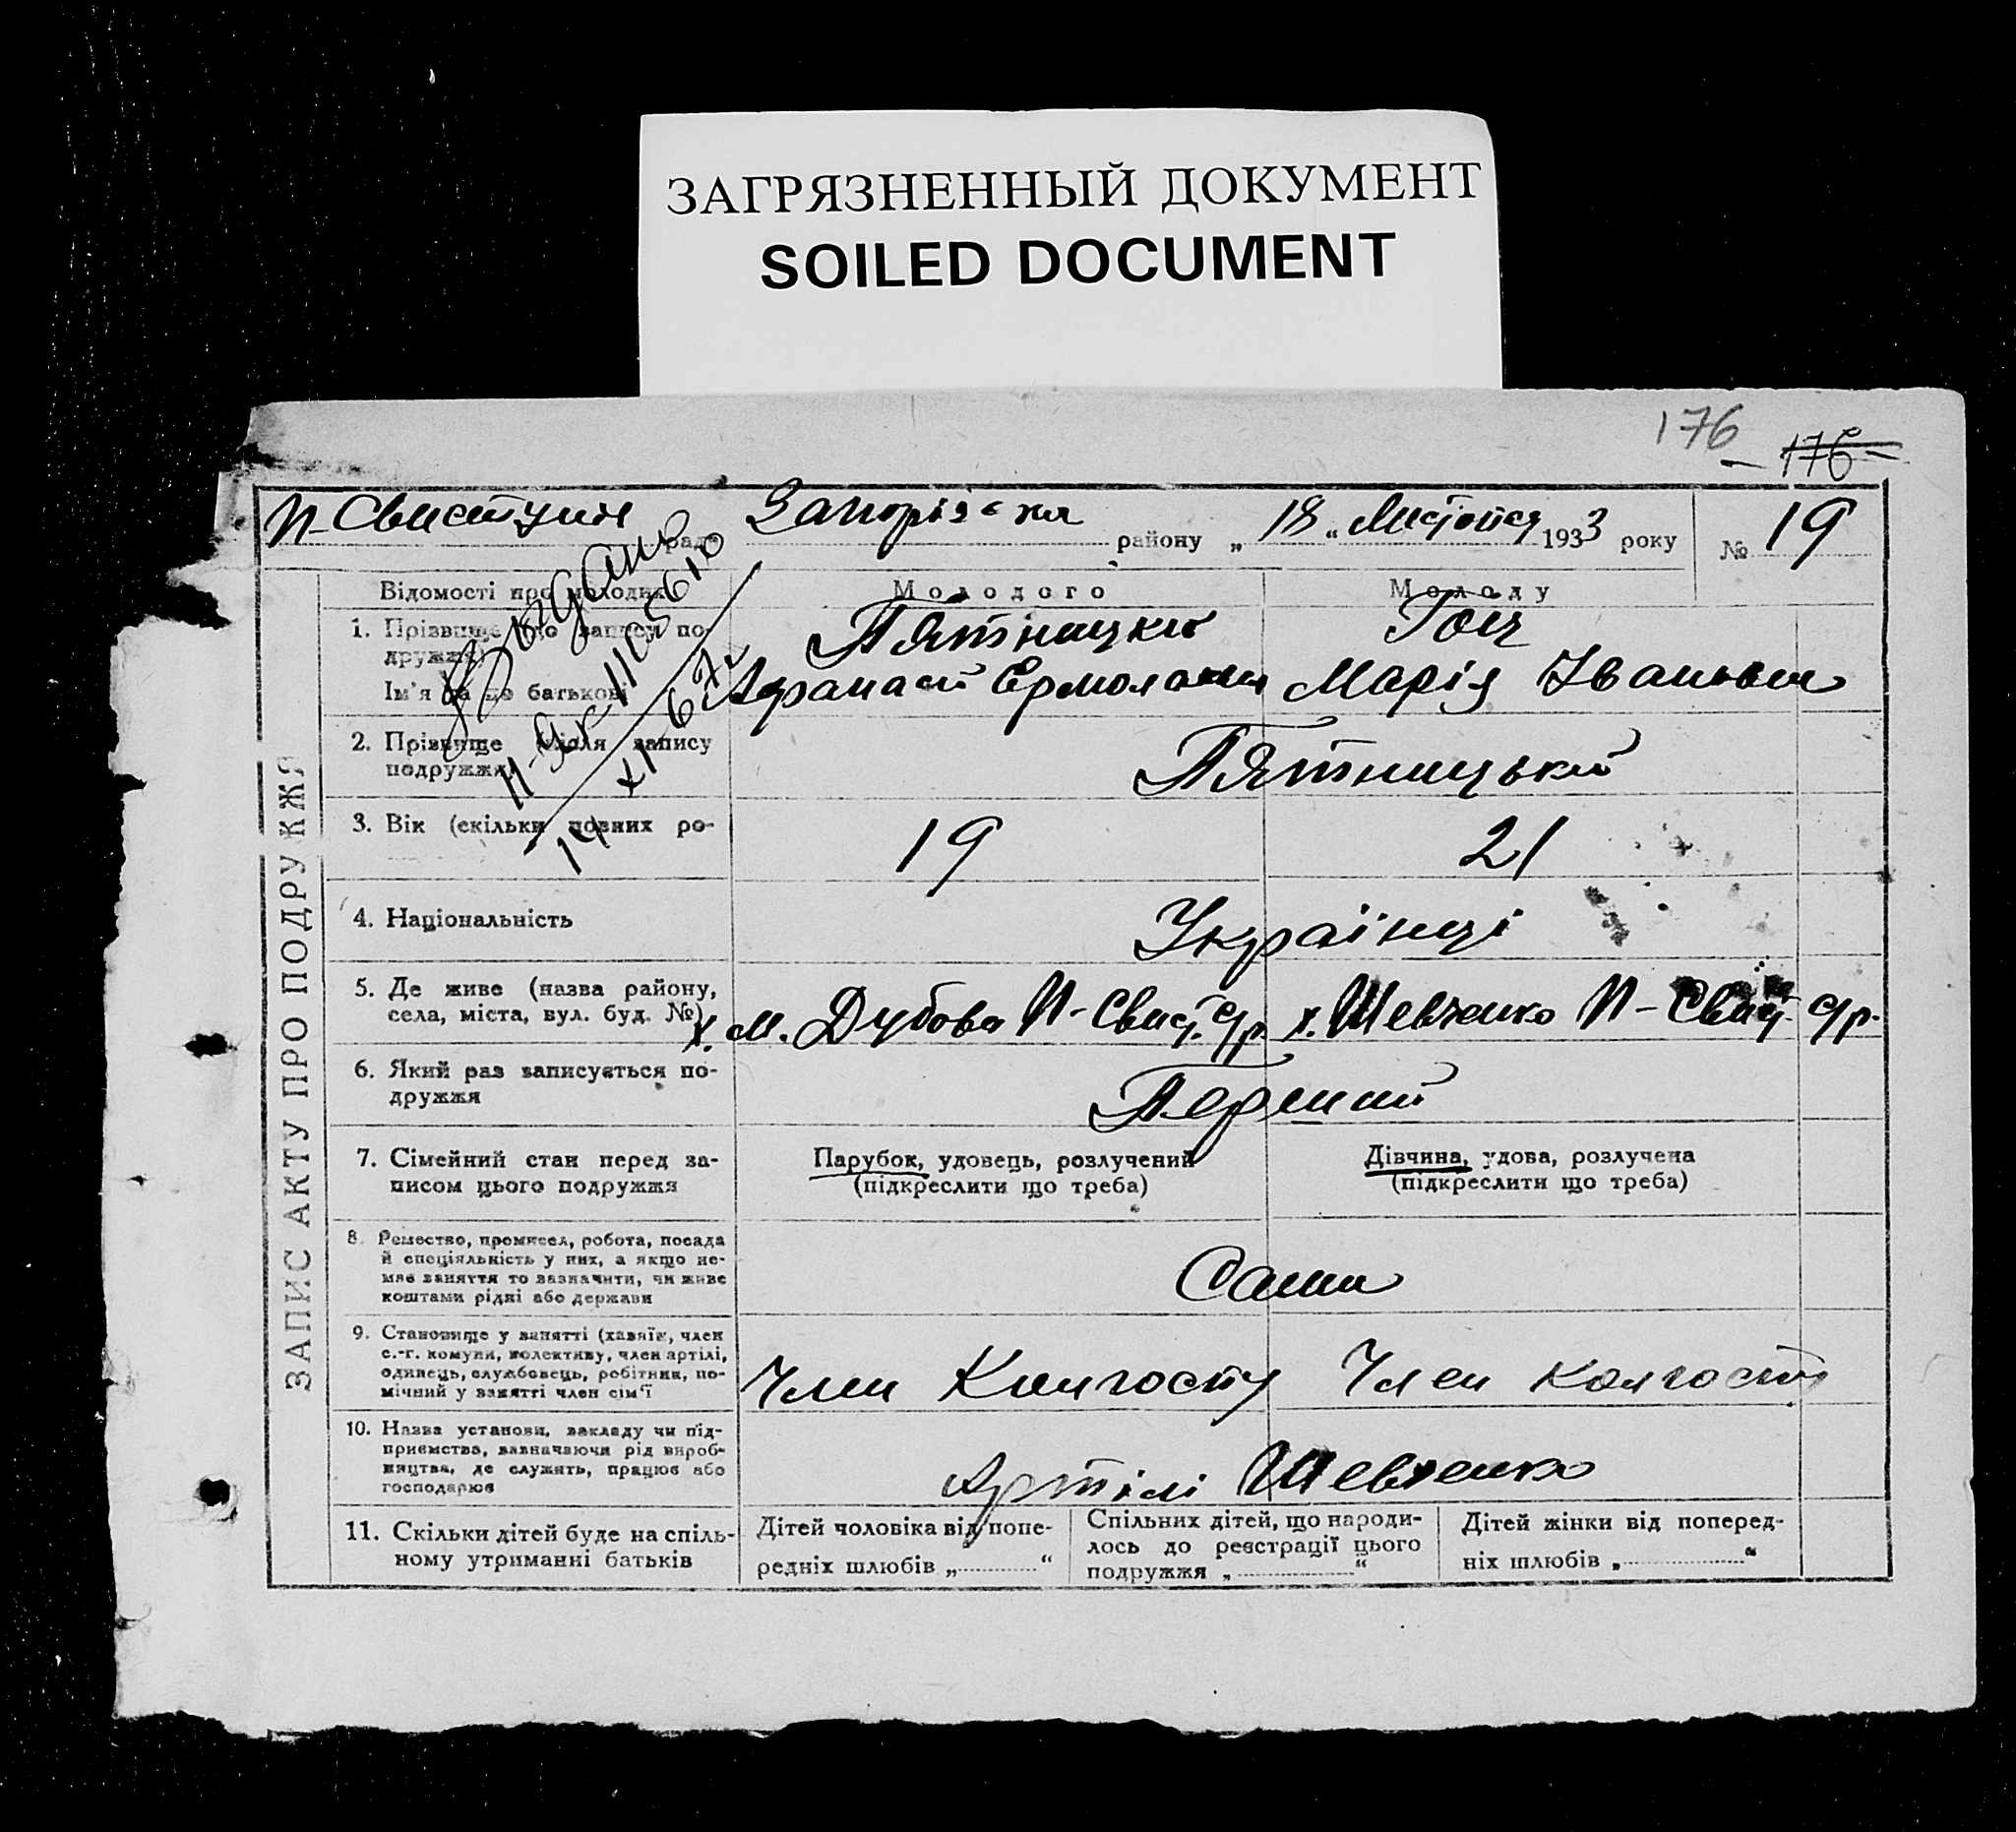 ЗАГРЯЗНЕННЫЙ ДОКУМЕНТ
SOILED DOCUMENT
176
176
П-Свистун рад Запорізька району „18“ Листопад 1933 року № 19
ЗАПИС АКТУ ПРО ПОДРУЖЖЯ
Відомості про молодих
Молодого
Молоду
1. Прізвище до запису по-
дружжя
Пятницкий
Гоц
Ім'я та по батькові
Афанасий Ермолаевич
Марія Іванівна
2. Прізвище після запису
подружжя
Пятницький
3. Вік (скільки повних ро-
19
21
4. Національність
Українці
5. Де живе (назва району,
села, міста, вул. буд. №)
х. М. Дубова П-Свист. с/р.
х. Шевченко П-Свист. с/р.
6. Який раз записується по-
дружжя
Перший
7. Сімейний стан перед за-
писом цього подружжя
Парубок, удовець, розлучений
(підкреслити що треба)
Дівчина, удова, розлучена
(підкреслити що треба)
8. Ремество, промисел, робота, посада
й спеціяльність у них, а якщо не-
має заняття то зазначити, чи живе
коштами рідні або держави
Сами
9. Становище у занятті (хазяїн, член
с.-г. комуни, колективу, член артілі,
одинець, службовець, робітник, по-
мічний у занятті член сім'ї
Член Колгоспу
Член колгоспу
10. Назва установи, закладу чи під-
приємства, зазначаючи рід вироб-
ництва, де служить, працює або
господарює
Артілі Шевченко
11. Скільки дітей буде на спіль-
ному утриманні батьків
Дітей чоловіка від попе-
редніх шлюбів „ “
Спільних дітей, що народи-
лось до реєстрації цього
подружжя „ “
Дітей жінки від поперед-
ніх шлюбів „ “